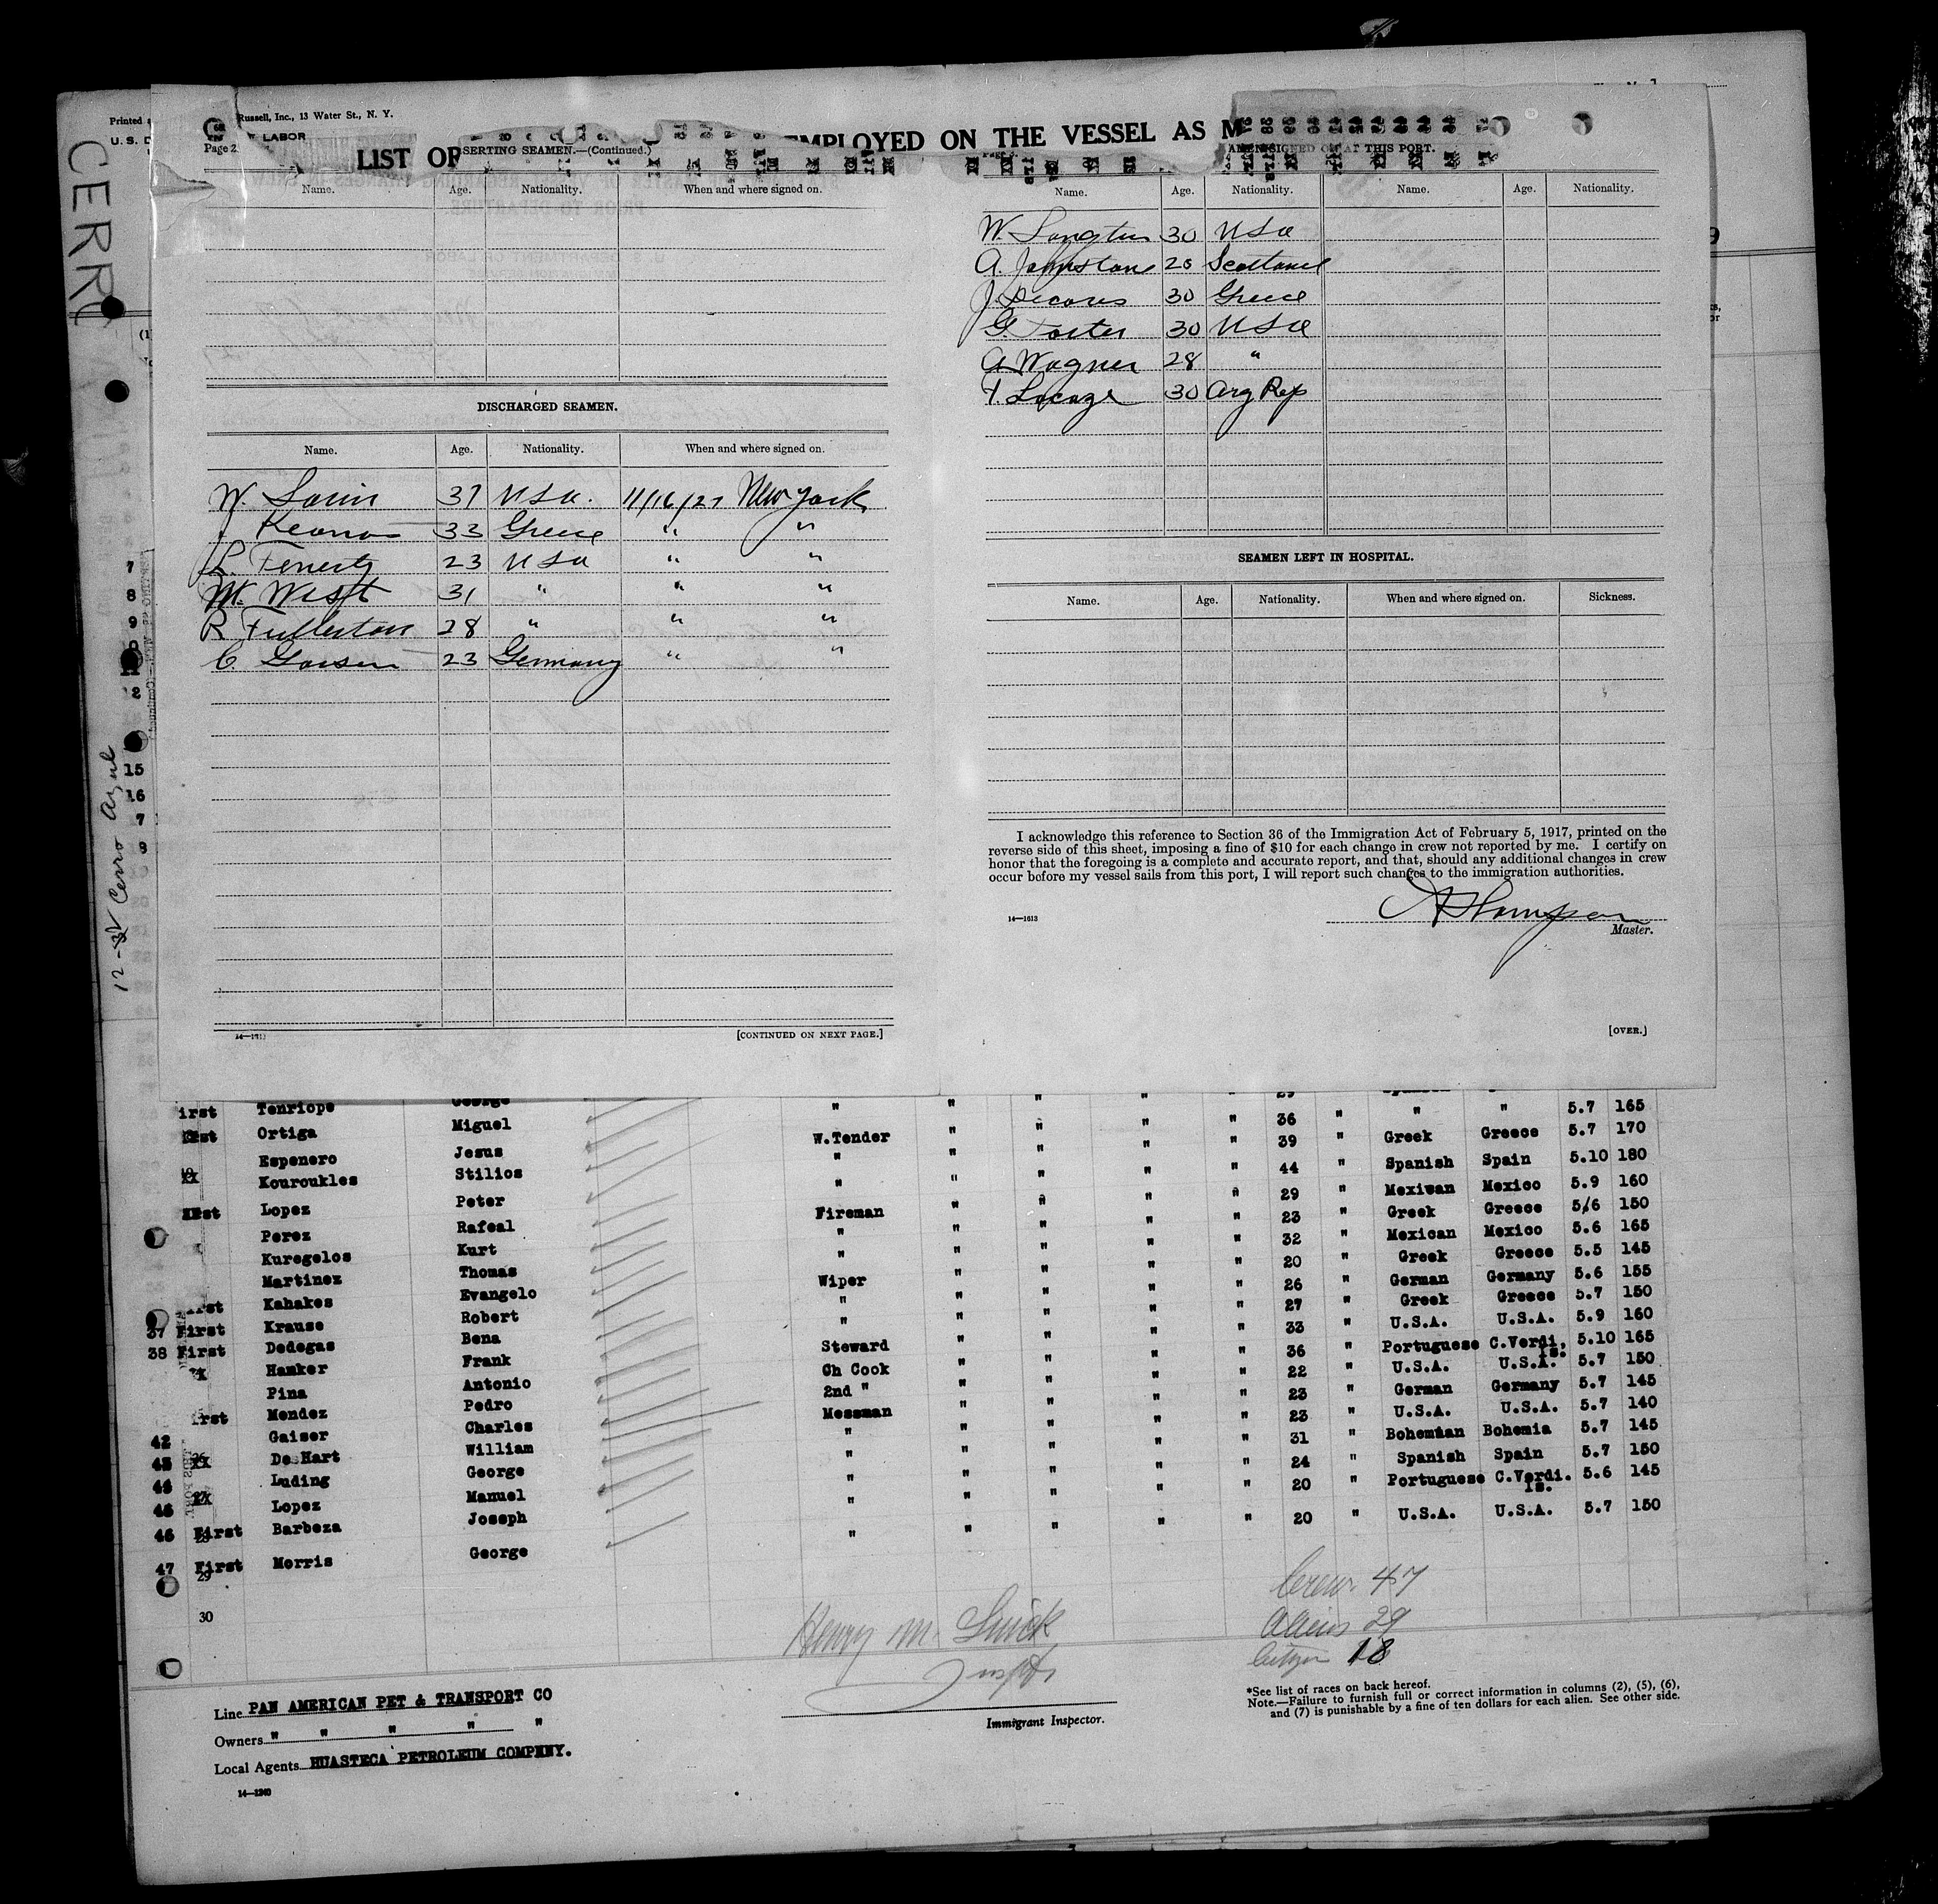 CERR
12-31 Cerro Azul
Russell, Inc., 13 Water St., N. Y.
LABOR
Page 2
LIST OF
SERTING SEAMEN.—(Continued.)
EMPLOYED ON THE VESSEL AS M
AT THIS PORT.
Name. Age. Nationality. When and where signed on.
DISCHARGED SEAMEN.
Name. Age. Nationality. When and where signed on.
W. 37 USA. 11/16/27 New York
33 Greece " "
L. Fenerty 23 USA " "
W. West 31 " " "
R Fullerton 28 " " "
C. 23 Germany " "
14—1613
[CONTINUED ON NEXT PAGE.]
Name. Age. Nationality. Name. Age. Nationality.
W. Langton 30 USA
A. Johnstone 28 Scotland
J. 30 Greece
G. Foster 30 USA
A Wagner 28 "
30 Arg Rep
SEAMEN LEFT IN HOSPITAL.
Name. Age. Nationality. When and where signed on. Sickness.
I acknowledge this reference to Section 36 of the Immigration Act of February 5, 1917, printed on the
reverse side of this sheet, imposing a fine of $10 for each change in crew not reported by me. I certify on
honor that the foregoing is a complete and accurate report, and that, should any additional changes in crew
occur before my vessel sails from this port, I will report such changes to the immigration authorities.
14—1613
Thompson
Master.
[OVER.]
Tenriope George " " " " " 29
Ortiga Miguel " " " " 36 " " " 5.7 165
Espenero Jesus W.Tender " " " " 39 " Greek Greece 5.7 170
Kouroukles Stilios " " " " " 44 " Spanish Spain 5.10 180
Lopez Peter " " " " " 29 " Mexiwan Mexico 5.9 160
Perez Rafeal Fireman " " " " 23 " Greek Greece 5/6 150
Kuregelos Kurt " " " " " 32 " Mexican Mexico 5.6 165
Martinez Thomas " " " " " 20 " Greek Greece 5.5 145
Kahakes Evangelo Wiper " " " " 26 " German Germany 5.6 155
37 First Krause Robert " " " " " 27 " Greek Greece 5.7 150
38 First Dedegas Bena " " " " " 33 " U.S.A. U.S.A. 5.9 160
Hamker Frank Steward " " " " 36 " Portuguese C.Verdi, Is. 5.10 165
Pina Antonio Ch Cook " " " " 22 " U.S.A. U.S.A. 5.7 150
Mendez Pedro 2nd " " " " " 23 " German Germany 5.7 145
42 Gaiser Charles Messman " " " " 23 " U.S.A. U.S.A. 5.7 140
43 DeHart William " " " " " 31 " Bohemian Bohemia 5.7 145
44 Luding George " " " " " 24 " Spanish Spain 5.7 150
45 Lopez Manuel " " " " " 20 " Portuguese C.Verdi. Is. 5.6 145
46 First Barbeza Joseph " " " " "
47 First Morris George " " " " " 20 " U.S.A. U.S.A. 5.7 150
29
30
Crew. 47
Aliens 29
Citizen 18
Henry M.
Inspt
Immigrant Inspector.
Line PAN AMERICAN PET & TRANSPORT CO
Owners " " " " "
Local Agents HUASTECA PETROLEUM COMPNNY.
14—1240
*See list of races on back hereof.
Note.—Failure to furnish full or correct information in columns (2), (5), (6),
and (7) is punishable by a fine of ten dollars for each alien. See other side.